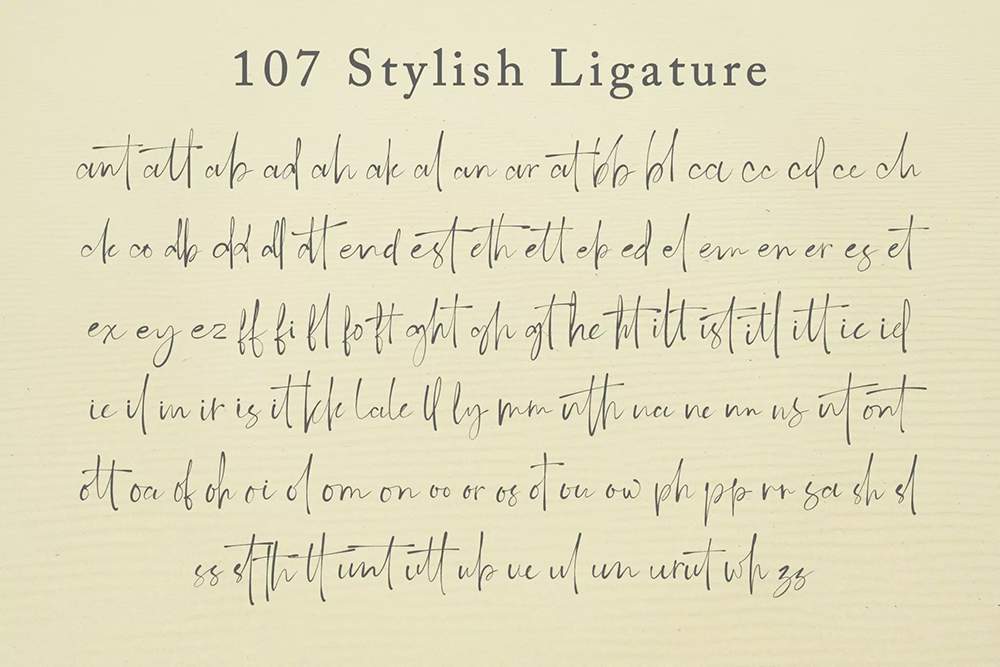 107 Stylish Ligature
ant att ab ad ah ak al an ar at bb bl ca cc cd ce ch
ck co db dd dl dt end est eth ett eb ed el em en er es et
ex ey ez ff fi fl fo ft ght gh gt he ht ilt ist itl itt ic id
ie il in ir is it kk la le ll ly mm nth na ne nn ns nt ont
ott oa of oh oi ol om on oo or os ot ou ow ph pp rr sa sh sl
ss st th tt unt utt ub ue ul un ur ut wh zs